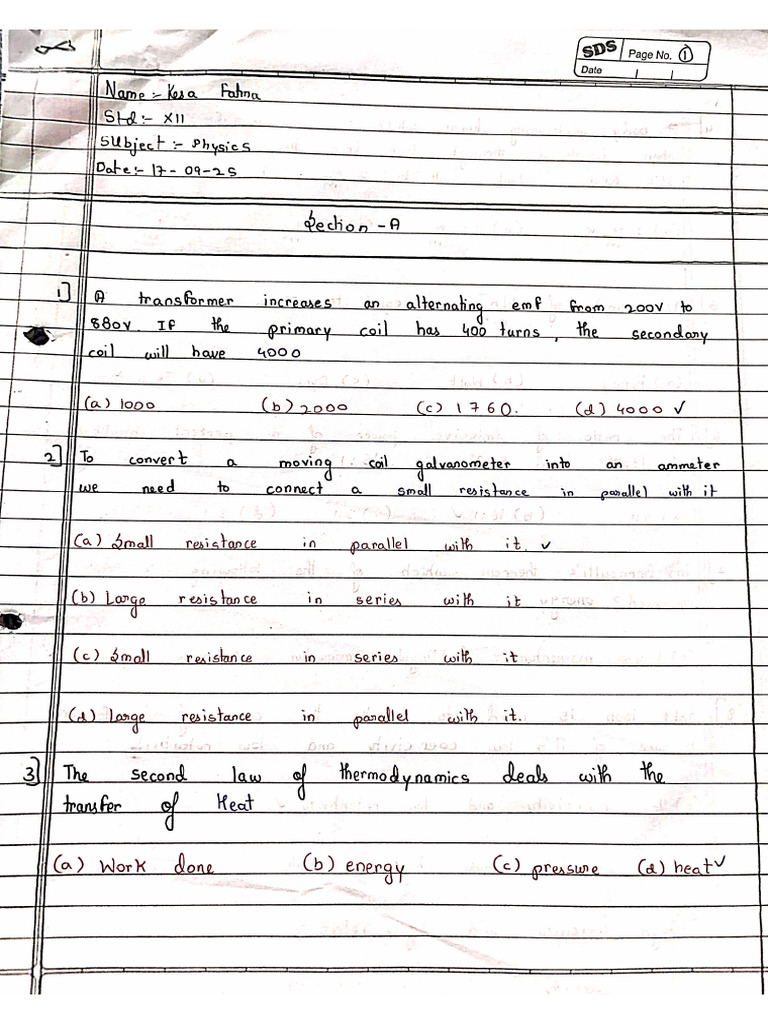 SDS Page No. 1
Date
Name:- Kesa Fatma
Std:- XII
Subject:- Physics
Date:- 17-09-25
Section -A
1] A transformer increases an alternating emf from 200V to
880V. If the primary coil has 400 turns, the secondary
coil will have 4000
(a) 1000 (b) 2000 (c) 1760. (d) 4000 ✓
2] To convert a moving coil galvanometer into an ammeter
we need to connect a small resistance in parallel with it
(a) Small resistance in parallel with it. ✓
(b) Large resistance in series with it
(c) Small resistance in series with it
(d) large resistance in parallel with it.
3] The second law of thermodynamics deals with the
transfer of Heat
(a) Work done (b) energy (c) pressure (d) heat ✓